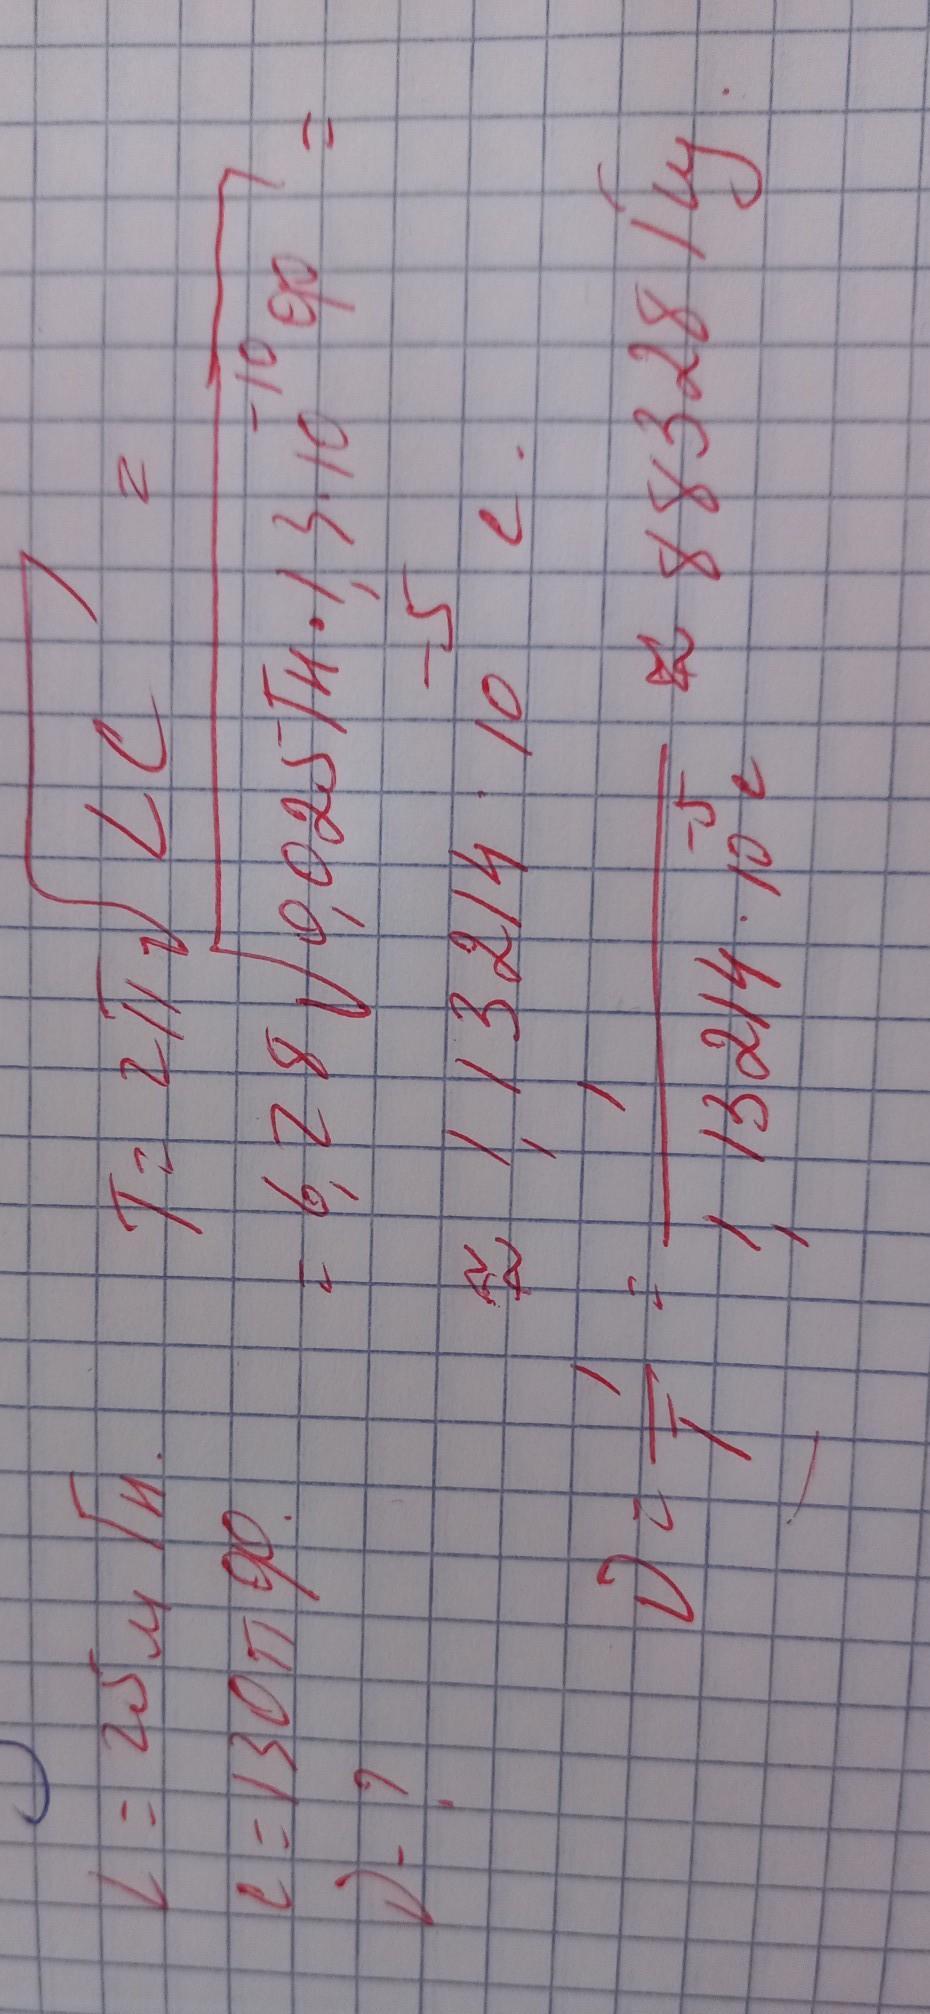 L = 25м Гн.
C = 130 п ф.
ν - ?
T = 2π √LC =
= 6,28 √0,025Гн · 1,3·10⁻¹⁰ ф =
≈ 1,13214 · 10⁻⁵ с.
ν = 1/T = 1/1,13214·10⁻⁵ с ≈ 88328 Гц.